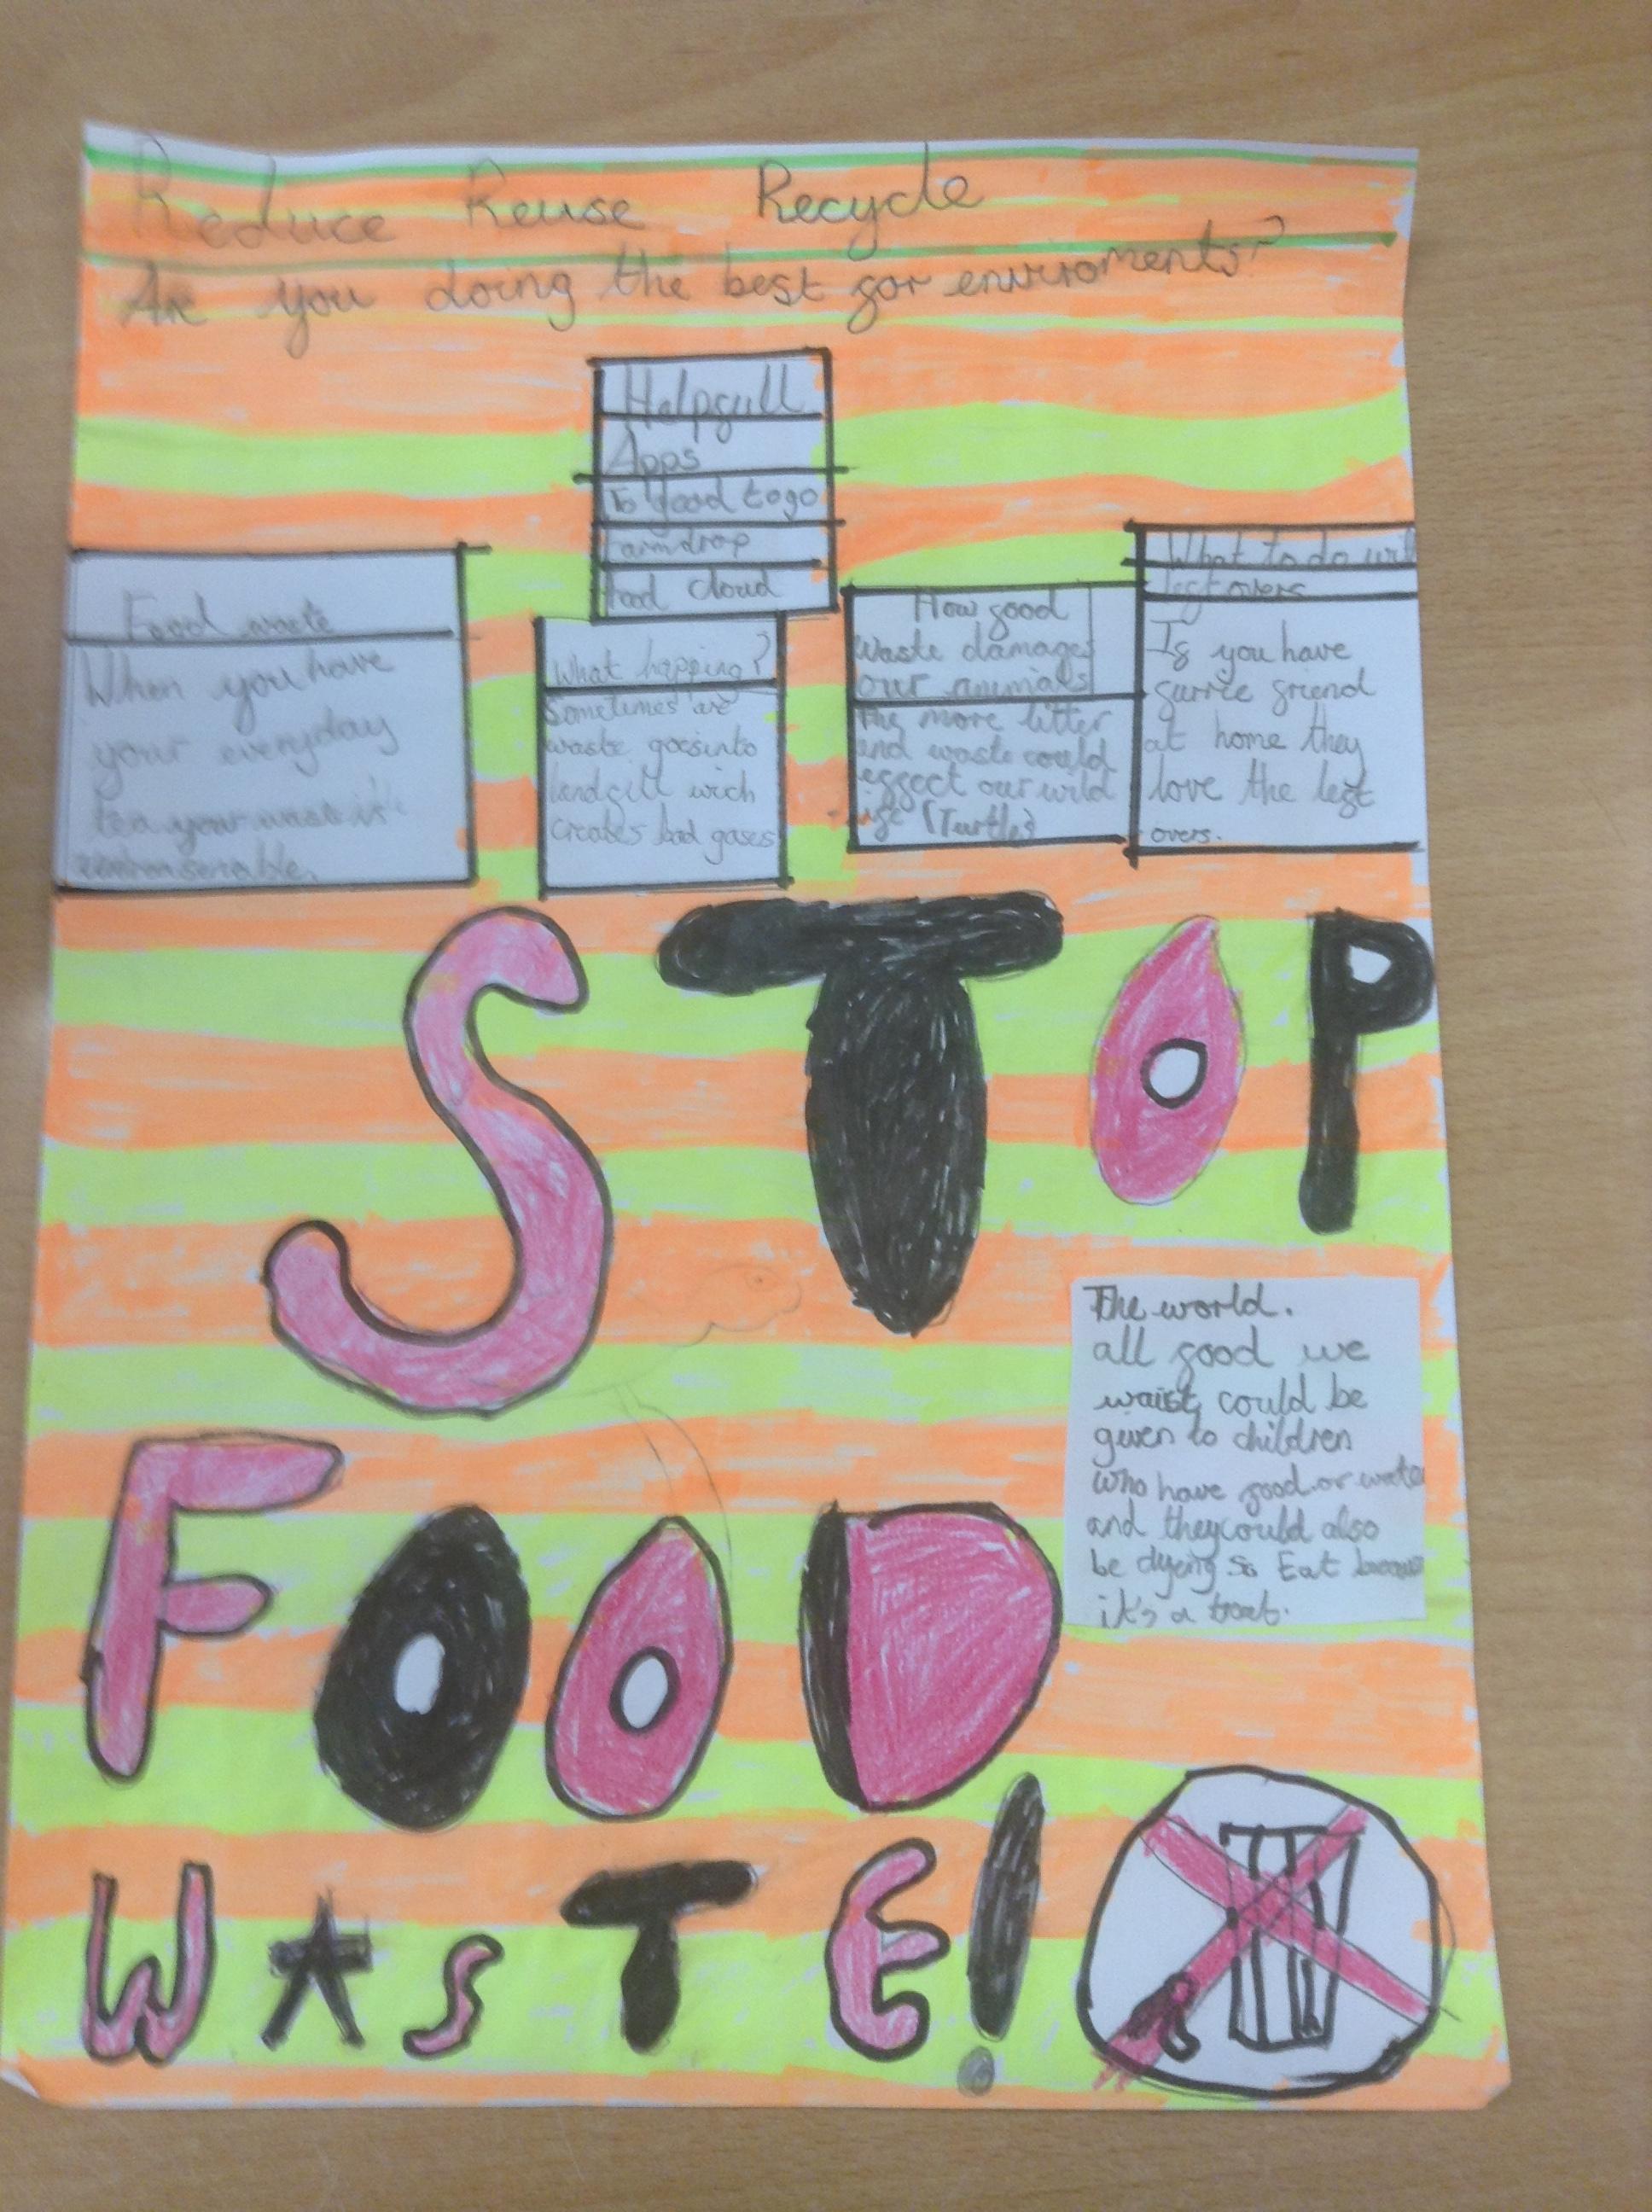 Reduce Reuse Recycle
Are you doing the best for enviroments?
Helpfull
Apps
To good togo
Farmdrop
Food cloud
Food waste
When you have
your everyday
tea your waste is
What happing?
Sometimes are
waste goesinto
landfill wich
creates bad gases
How food
waste damages
our animals
The more litter
and waste could
effect our wild
life (Turtles)
What to do wit
leftovers
If you have
furrie friend
at home they
love the left
overs.
STOP
The world.
all food we
waist could be
given to children
who have food or wate
and theycould also
be dyeing so Eat because
it's a treat.
FOOD
WASTE!